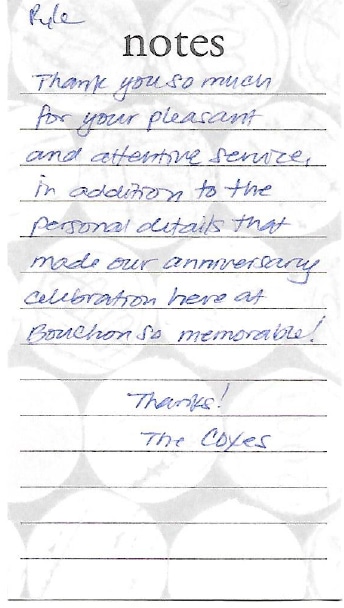 Ryle
notes
Thank you so much
for your pleasant
and attentive service,
in addition to the
personal details that
made our anniversary
celebration here at
Bouchon so memorable!
Thanks!
The Coxes